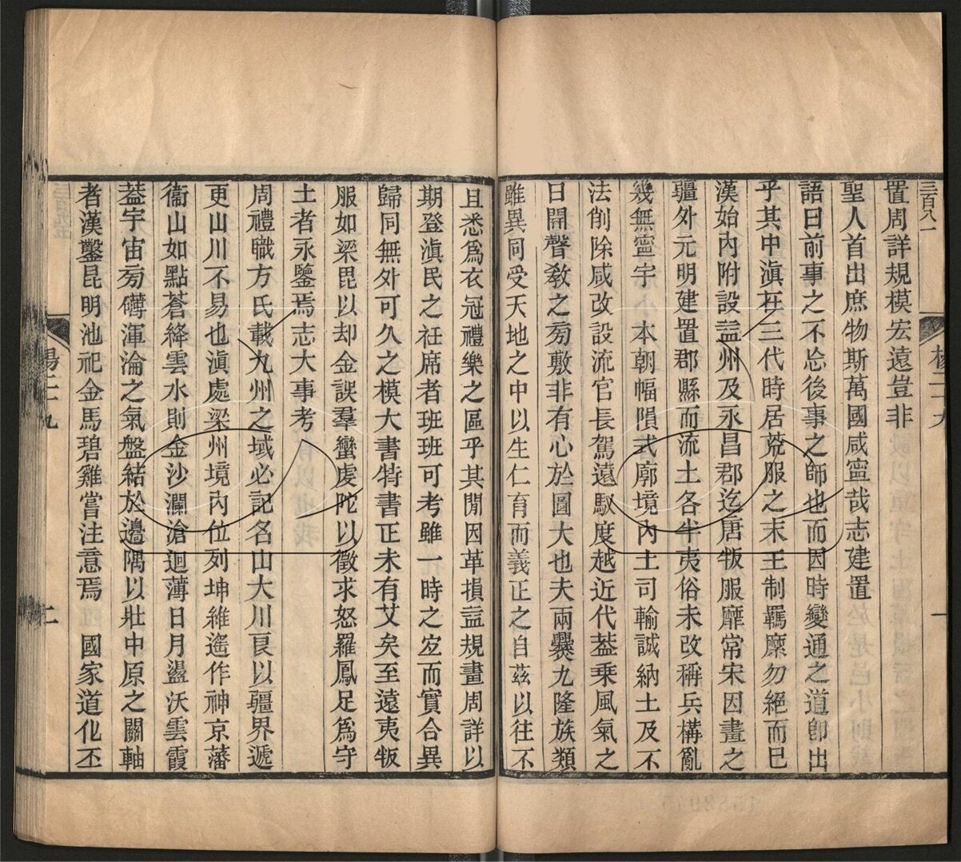 三百八一
置周詳規模宏遠豈非
聖人首出庶物斯萬國咸寧哉志建置
語曰前事之不忘後事之師也而因時變通之道卽出
乎其中滇在三代時居荒服之末王制羈縻勿絕而已
漢始內附設益州及永昌郡迄唐叛服靡常宋因畫之
疆外元明建置郡縣而流土各半夷俗未改稱兵構亂
幾無寧宇 本朝幅隕式廓境內土司輸誠納土及不
法削除咸改設流官長駕遠馭度越近代葢乘風氣之
日開聲敎之旁敷非有心於圖大也夫兩爨九隆族類
雖異同受天地之中以生仁育而義正之自茲以往不
且悉爲衣冠禮樂之區乎其閒因革損益規畫周詳以
期登滇民之衽席者班班可考雖一時之宐而實合異
歸同無外可久之模大書特書正未有艾矣至遠夷叛
服如梁毘以却金誤羣蠻虔陀以徵求怒羅鳳足爲守
土者永鑒焉志大事考
周禮職方氏載九州之域必記名山大川良以疆界遞
更山川不易也滇處梁州境內位列坤維遙作神京藩
衞山如點蒼絳雲水則金沙瀾滄迴薄日月盪沃雲霞
葢宇宙旁礴渾淪之氣盤結於邊隅以壯中原之關軸
者漢鑿昆明池祀金馬碧雞嘗注意焉 國家道化丕